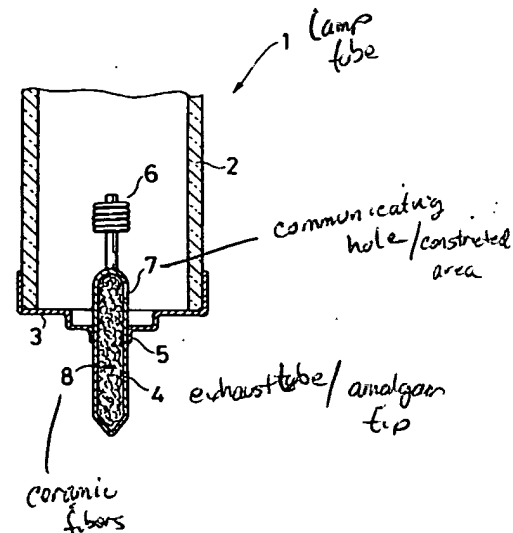 1 Lamp
tube
6
2
communicating
hole/constricted
area
7
3
5
8
4
exhaust tube/amalgam
tip
ceramic
fibers